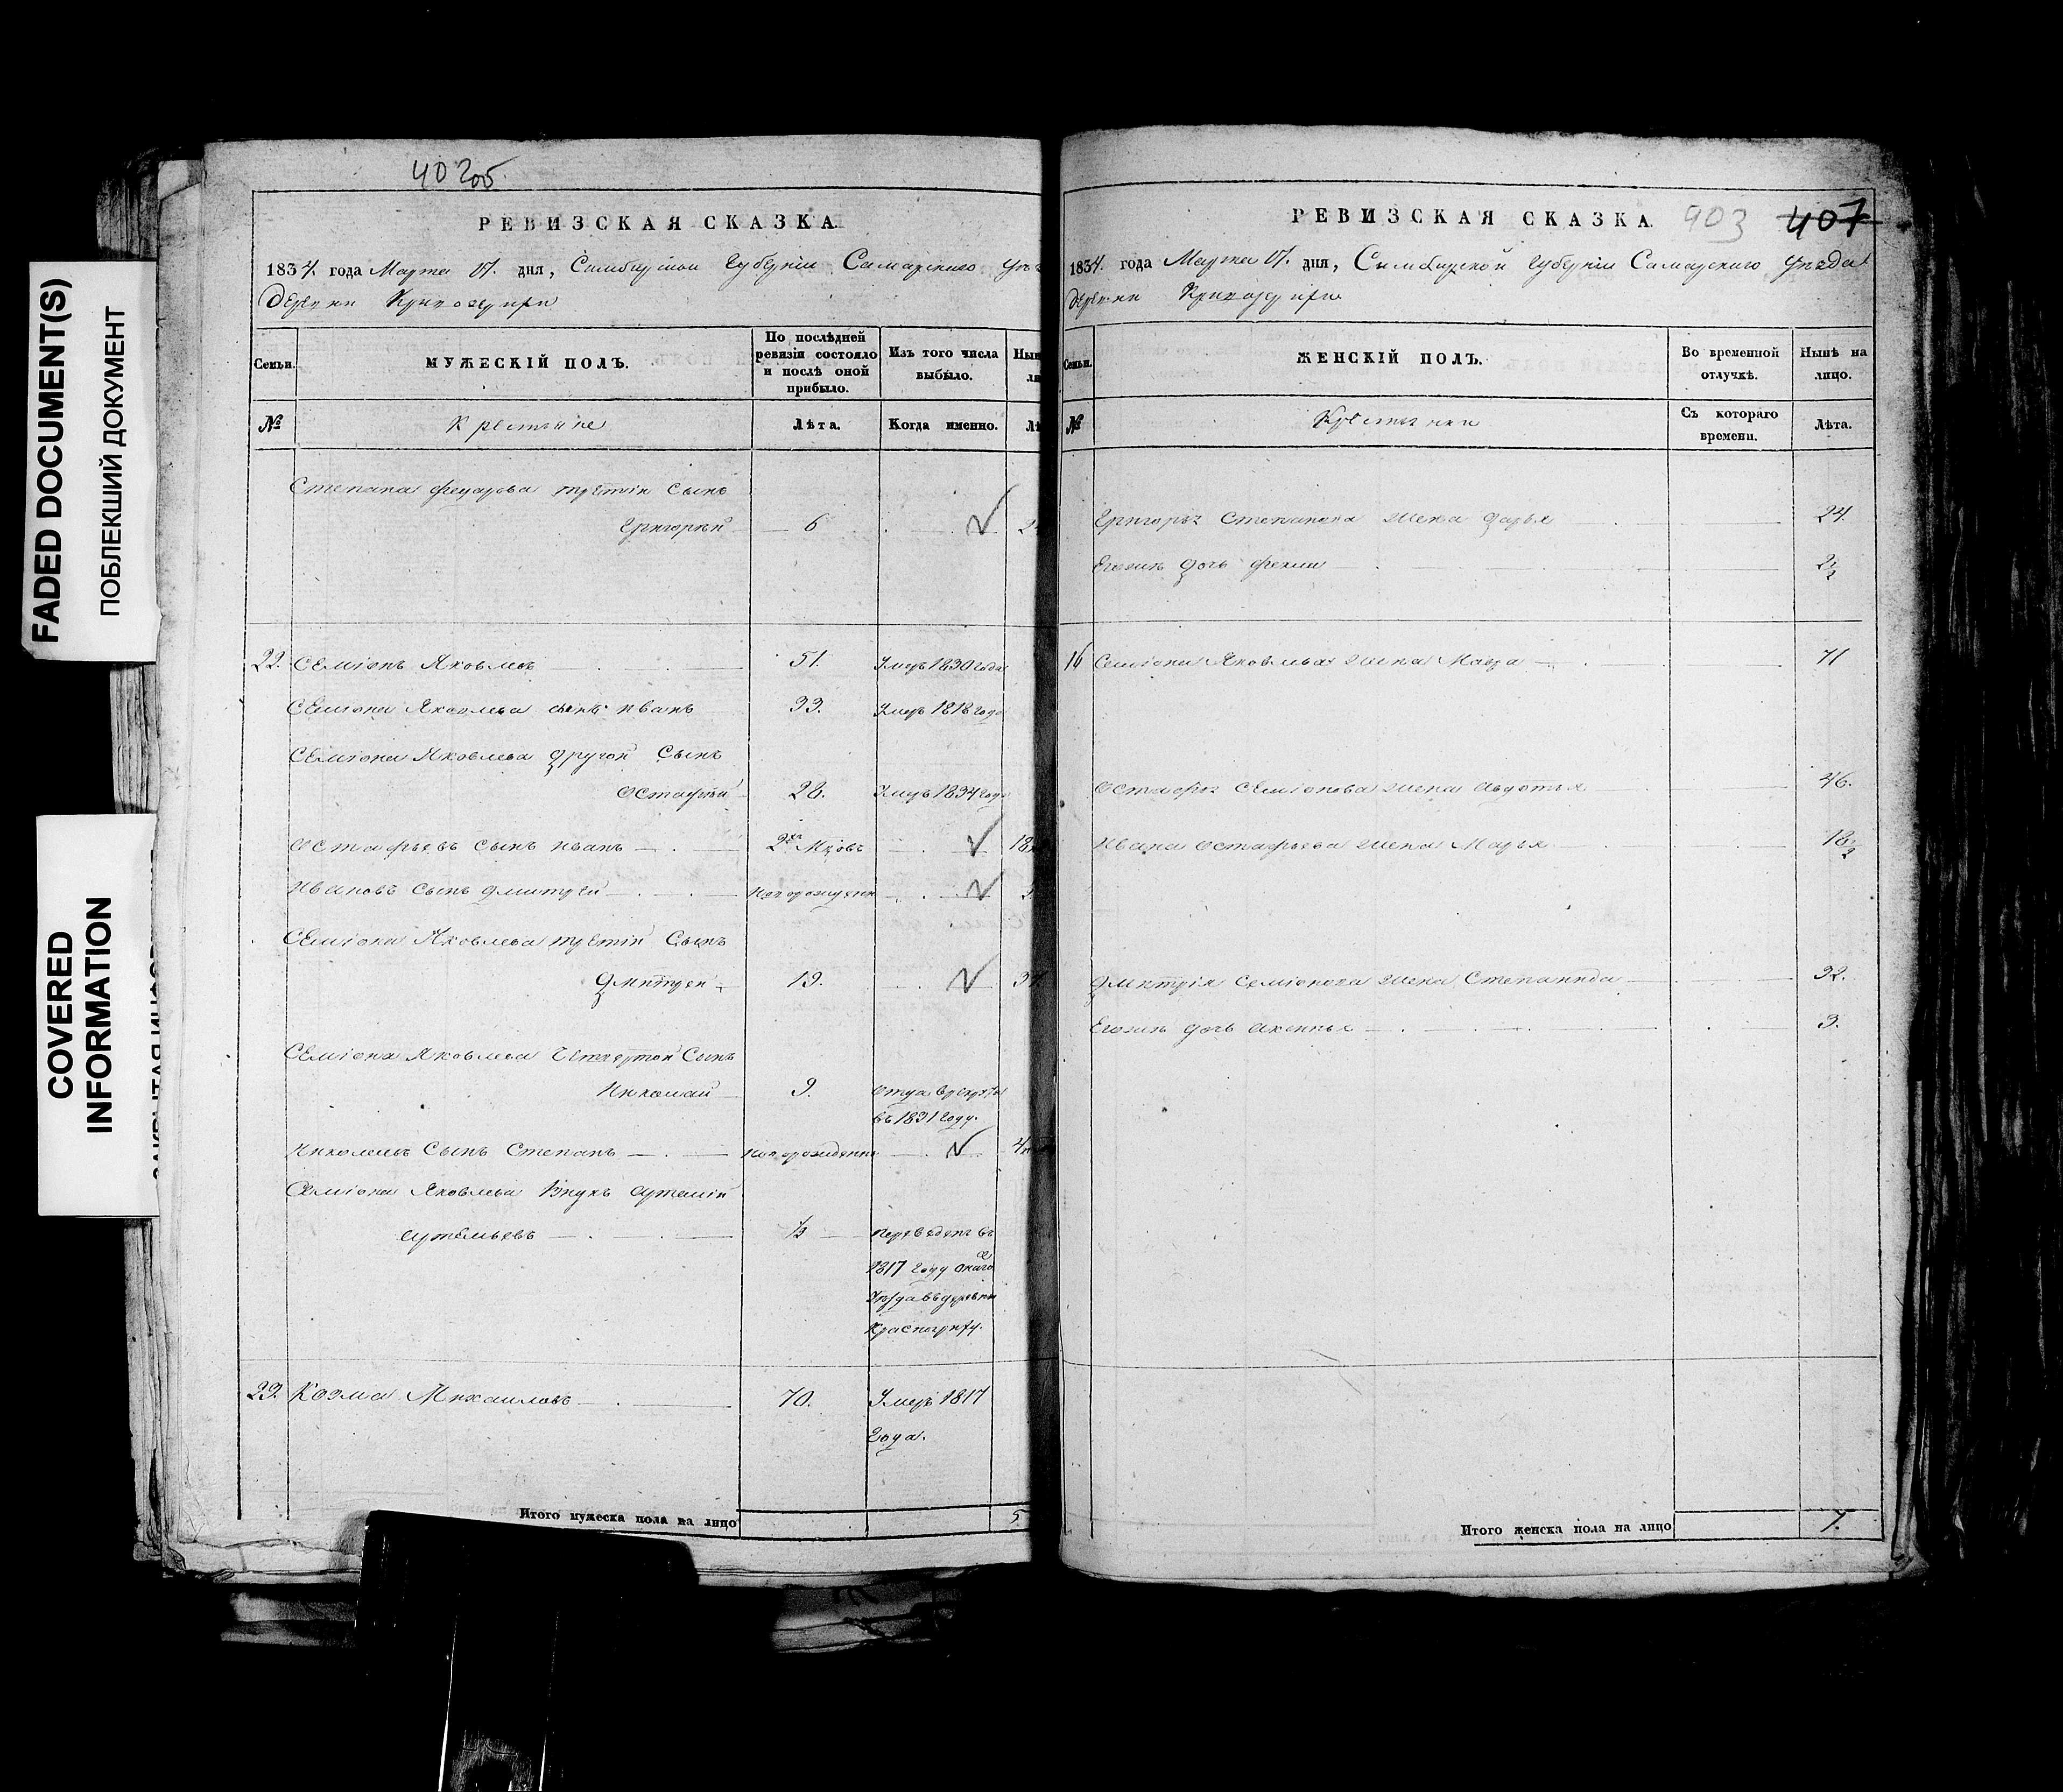 FADED DOCUMENT(S)
ПОБЛЕКШИЙ ДОКУМЕНТ
COVERED
INFORMATION
402об.
РЕВИЗСКАЯ СКАЗКА.
1834. года Марта 17. дня, Симбирской Губернiи Самарскаго
деревни
Семьи.
МУЖЕСКIЙ ПОЛЪ.
По послѣдней
ревизiи состояло
и послѣ оной
прибыло.
Изъ того числа
выбыло.
№
Крестьяне
Лѣта.
Когда именно.
Степана Федорова третiй сынъ
Григорей 6
22. Семiонъ Яковлевъ 51. Умеръ 1830 года
Семiона Яковлева сынъ Иванъ 33. Умеръ 1818 года
Семiона Яковлева другой сынъ
Остафей 28. Умеръ 1834 года
Остафьевъ сынъ Иванъ 2хъ Мцовъ 18
Ивановъ сынъ Дмитрей
Семiона Яковлева третiй сынъ
Дмитрей 19.
Семiона Яковлева Четвертой сынъ
Николай 9. отда въ рекруты
въ 1831 году.
Николаевъ сынъ Степанъ
Семiона Яковлева Внукъ Артемiй
Артемьевъ ½ переведенъ въ
1817 году
уѣзда въ деревню
23. Козма Михаиловъ 70. Умеръ 1817
года.
Итого мужеска пола на лицо 5
РЕВИЗСКАЯ СКАЗКА.
903 407
1834. года Марта 17. дня, Симбирской Губернiи Самарскаго уѣзда
деревни
Семьи.
ЖЕНСКIЙ ПОЛЪ.
Во временной
отлучкѣ.
Нынѣ на
лицо.
№
Крестьянки
Съ котораго
времени.
Лѣта.
Григорья Степанова жена Дарья 24.
Егожъ дочь
16 Семiона Яковлева жена 71
Остафья Семiонова жена Авдотья 46.
Ивана Остафьева жена Марья 18½
Дмитрiя Семiонова жена Степанида 32.
Егожъ дочь Аксинья 3.
Итого женска пола на лицо 7.